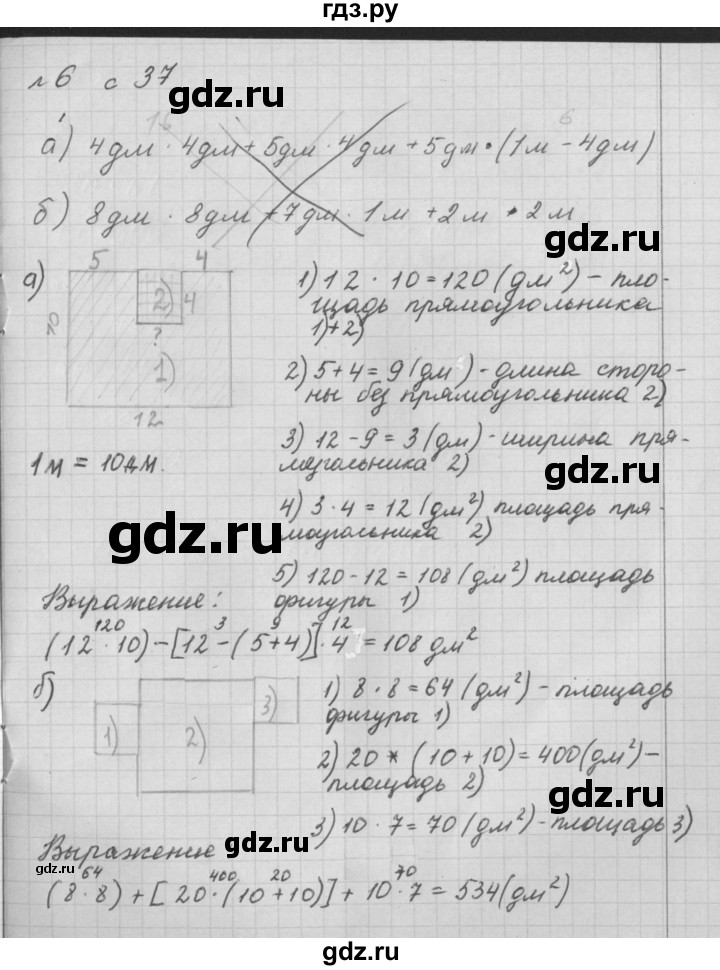 гдз.ру
№6 с 37
gdz.ru
16 6
а) 4дм · 4дм + 5дм · 4дм + 5дм · (1м - 4дм)
б) 8дм · 8дм + 7дм · 1м + 2м · 2м
gdz.ru
а)
5 4
2) 4
10
?
1)
12
1м = 10дм.
1) 12 · 10 = 120 (дм²) - пло-
щадь прямоугольника
1)+2)
2) 5+4 = 9 (дм) - длина сторо-
ны без прямоугольника 2)
3) 12 - 9 = 3 (дм) - ширина пря-
моугольника 2)
gdz.ru
4) 3 · 4 = 12 (дм²) площадь пря-
моугольника 2)
gdz.ru
5) 120 - 12 = 108 (дм²) площадь
фигуры 1)
Выражение:
120 3 9 12
(12 · 10) - [12 - (5+4)] · 4 = 108 дм²
б)
1) 2) 3)
1) 8 · 8 = 64 (дм²) - площадь
фигуры 1)
gdz.ru
2) 20 * (10 + 10) = 400 (дм²) -
площадь 2)
3) 10 · 7 = 70 (дм²) - площадь 3)
gdz.ru
Выражение
gdz.ru
64 400 20 70
(8 · 8) + [20 · (10 + 10)] + 10 · 7 = 534 (дм²)
gdz.ru